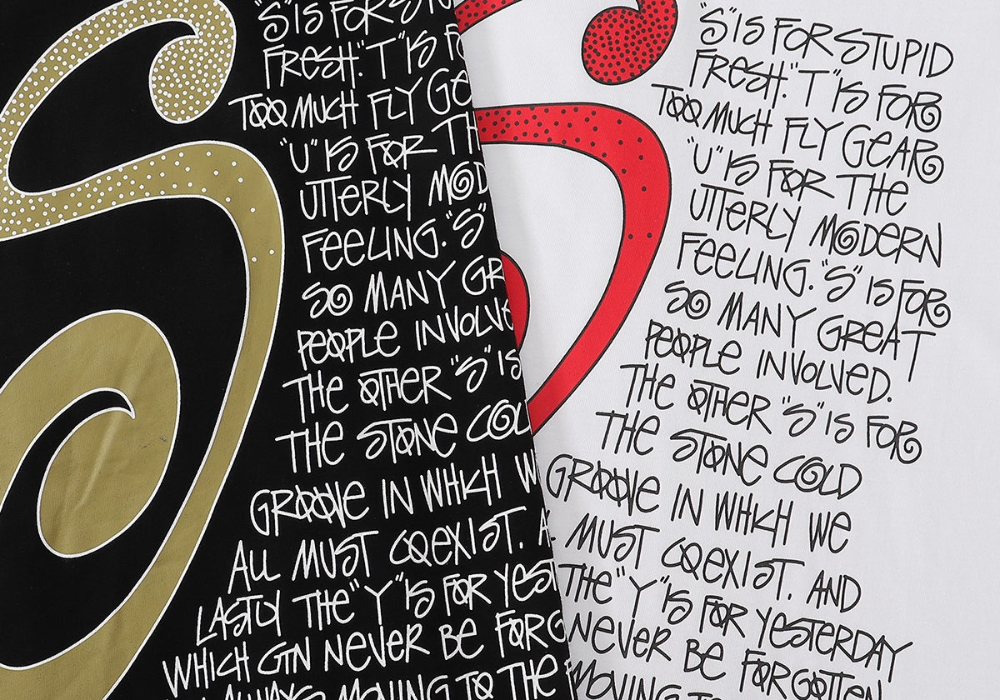 "S" IS FOR STU
FRESH. "T" IS F
TOO MUCH FLY GE
"U" IS FOR TH
UTTERLY MOD
FEELING. "S"
SO MANY GR
PEOPLE INVOLVE
THE OTHER "S" IS
THE STONE COL
GROOVE IN WHICH W
ALL MUST COEXIST. A
LASTLY THE "Y" IS FOR YEST
WHICH CAN NEVER BE FORG
ALWAYS MOVING TO THE
"S" IS FOR STUPID
FRESH. "T" IS FOR
TOO MUCH FLY GEAR
"U" IS FOR THE
UTTERLY MODERN
FEELING. "S" IS FOR
SO MANY GREAT
PEOPLE INVOLVED.
THE OTHER "S" IS FOR
THE STONE COLD
GROOVE IN WHICH WE
MUST COEXIST. AND
THE "Y" IS FOR YESTERDAY
NEVER BE FORGOTTEN
MOVING TO